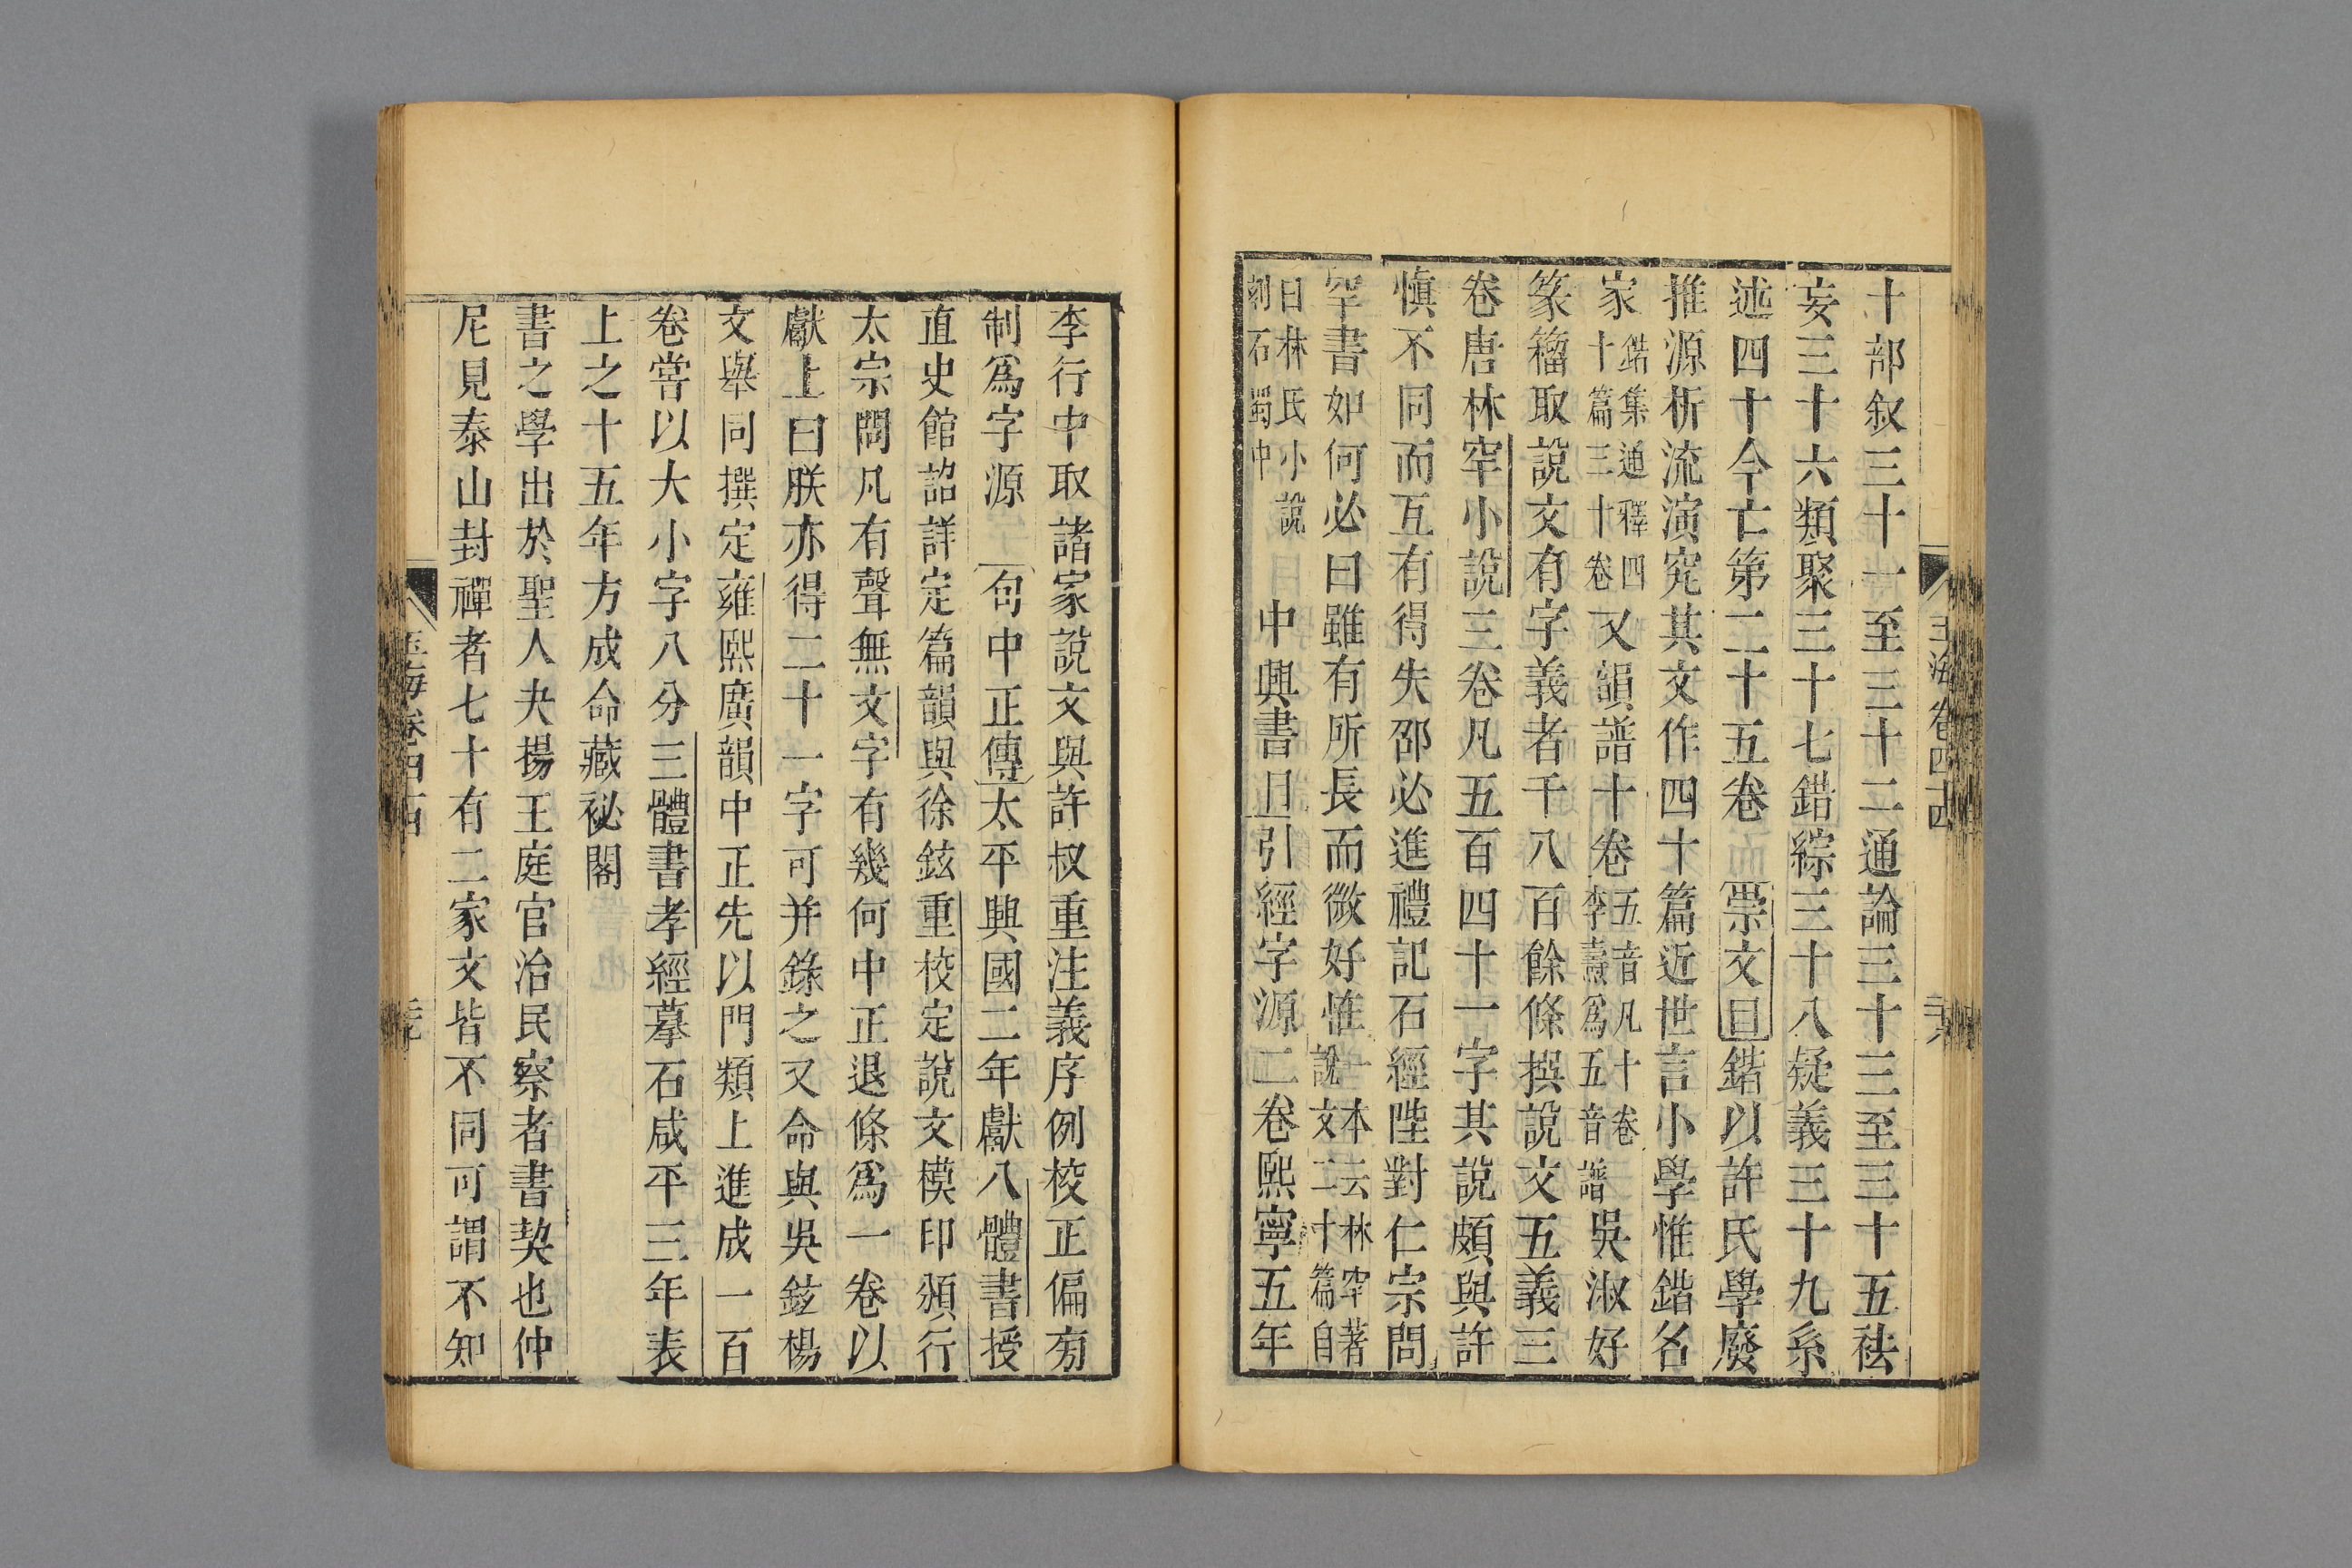 十部叙三十一至三十二通論三十三至三十五袪
妄三十六類聚三十七錯綜三十八疑義三十九系
述四十今亡第二十五卷 崇文目鍇以許氏學廢
推源析流演究其文作四十篇近世言小學惟鍇名
家鍇集通釋四十篇三十卷又韻譜十卷五音凡十卷李燾爲五音譜吳淑好
篆籀取說文有字義者千八百餘條撰說文五義三
卷唐林罕小說三卷凡五百四十一字其說頗與許
慎不同而互有得失邵必進禮記石經陛對仁宗問
罕書如何必曰雖有所長而微好怪一本云林罕著說文二十篇自
曰林氏小說刻石蜀中 中興書目引經字源二卷熙寧五年
玉海卷四十四
李行中取諸家說文與許叔重注義序例校正偏旁
制爲字源 句中正傳太平興國二年獻八體書授
直史館詔詳定篇韻與徐鉉重校定說文模印頒行
太宗閱凡有聲無文字有幾何中正退條爲一卷以
獻上曰朕亦得二十一字可并錄之又命與吳鉉楊
文舉同撰定雍熙廣韻中正先以門類上進成一百
卷嘗以大小字八分三體書孝經摹石咸平三年表
上之十五年方成命藏祕閣
書之學出於聖人夬揚王庭官治民察者書契也仲
尼見泰山封禪者七十有二家文皆不同可謂不知
玉海卷四十四